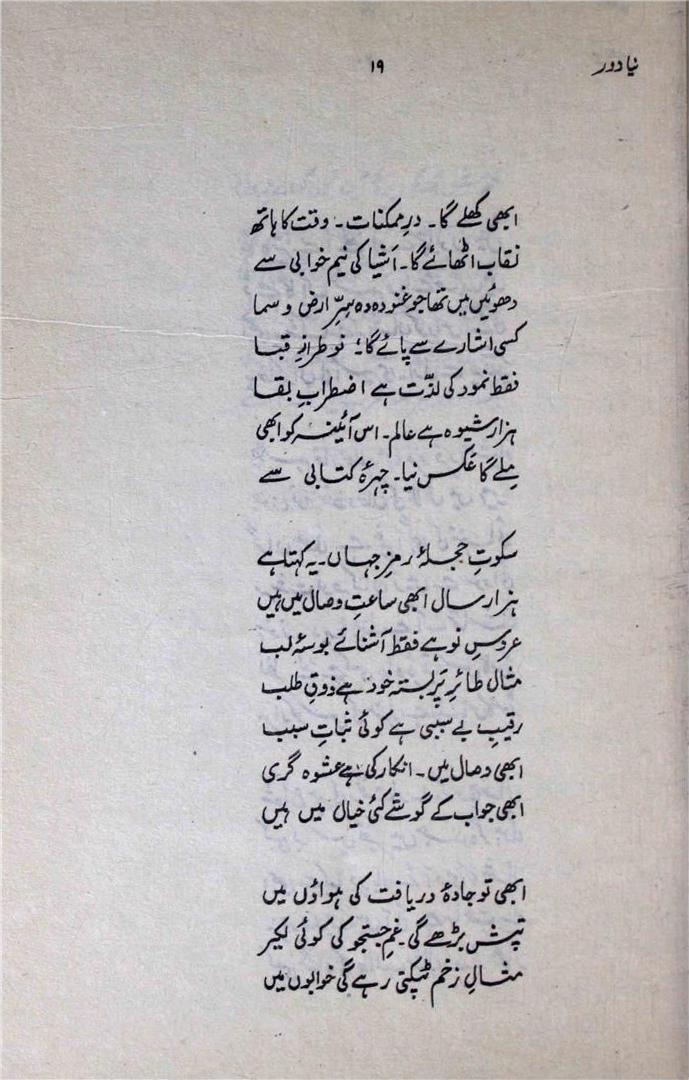 نیا دور
۱۹
ابھی کھلے گا۔ درِ ممکنات۔ وقت کا ہاتھ
نقاب اٹھائے گا۔ اَشیا کی نیم خوابی سے
دھوئیں میں تھا جو غنودہ وہ سرِّ ارض و سما
کسی اشارے سے پائے گا؛ نو طرازِ قبا
فقط نمود کی لذّت ہے اضطرابِ بقا
ہزار شیوہ ہے عالم۔ اس آئینہ کو ابھی
مِلے گا عکس نیا۔ چہرۂ کتابی سے
سکوتِ حجلۂ رمزِ جہاں۔ یہ کہتا ہے
ہزار سال ابھی ساعتِ وصال میں ہیں
عروسِ نو ہے فقط آشنائے بوسۂ لب
مثال طائرِ پَر بستہ خود ہے ذوقِ طلب
رقیبِ بے سببی ہے کوئی ثباتِ سبب
ابھی وصال میں۔ انکار کی ہے عشوہ گری
ابھی جواب کے گوشے کئی خیال میں ہیں
ابھی تو جادۂ دریافت کی ہواؤں میں
تپش بڑھے گی۔ غمِ جستجو کی کوئی لکیر
مثالِ زخم ٹپکتی رہے گی خوابوں میں